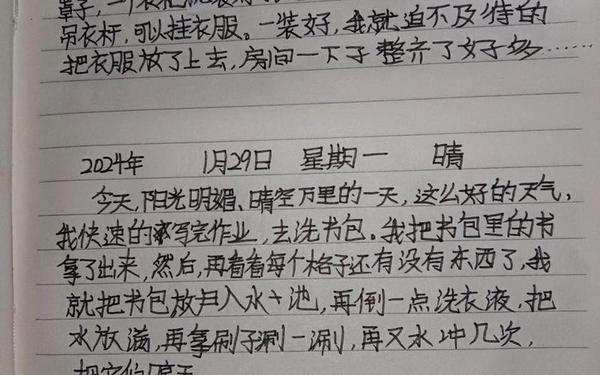 罩子，一个衣
吊衣杆，可以挂衣服。一装好，我就迫不及待的
把衣服放了上去，房间一下子整齐了好多……
2024年 1月29日 星期一 晴
今天，阳光明媚、晴空万里的一天，这么好的天气，
我快速的写完作业，去洗书包。我把书包里的书
拿了出来，然后，再看看每个格子还有没有东西了，我
就把书包放入水池，再倒一点洗衣液，把
水放满，再拿刷子涮一涮，再又水冲几次，
把它们